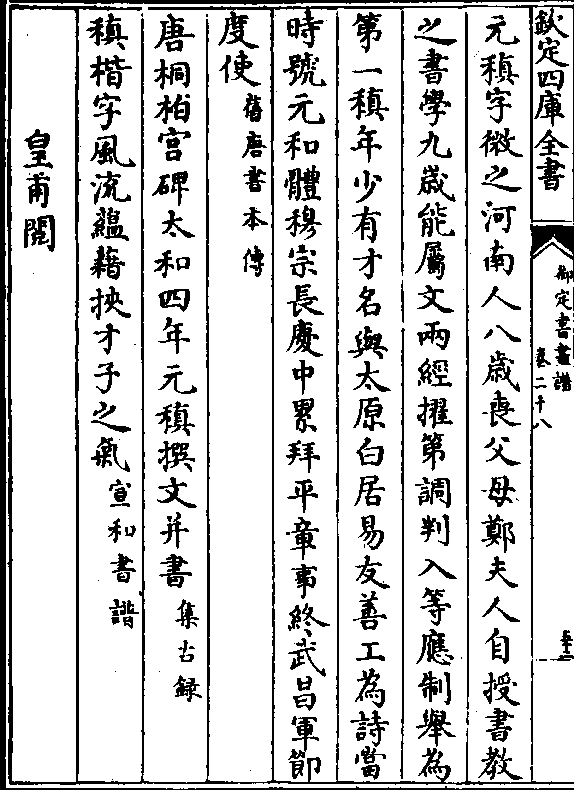 欽定四庫全書
御定書畫譜
卷二十八
元稹字微之河南人八歲喪父母鄭夫人自授書教
之書學九歲能屬文兩經擢第調判入等應制舉為
第一稹年少有才名與太原白居易友善工為詩當
時號元和體穆宗長慶中累拜平章事終武昌軍節
度使舊唐書本傳
唐桐柏宫碑太和四年元稹撰文并書集古録
稹楷字風流蘊藉挾才子之氣宣和書譜
皇甫閱